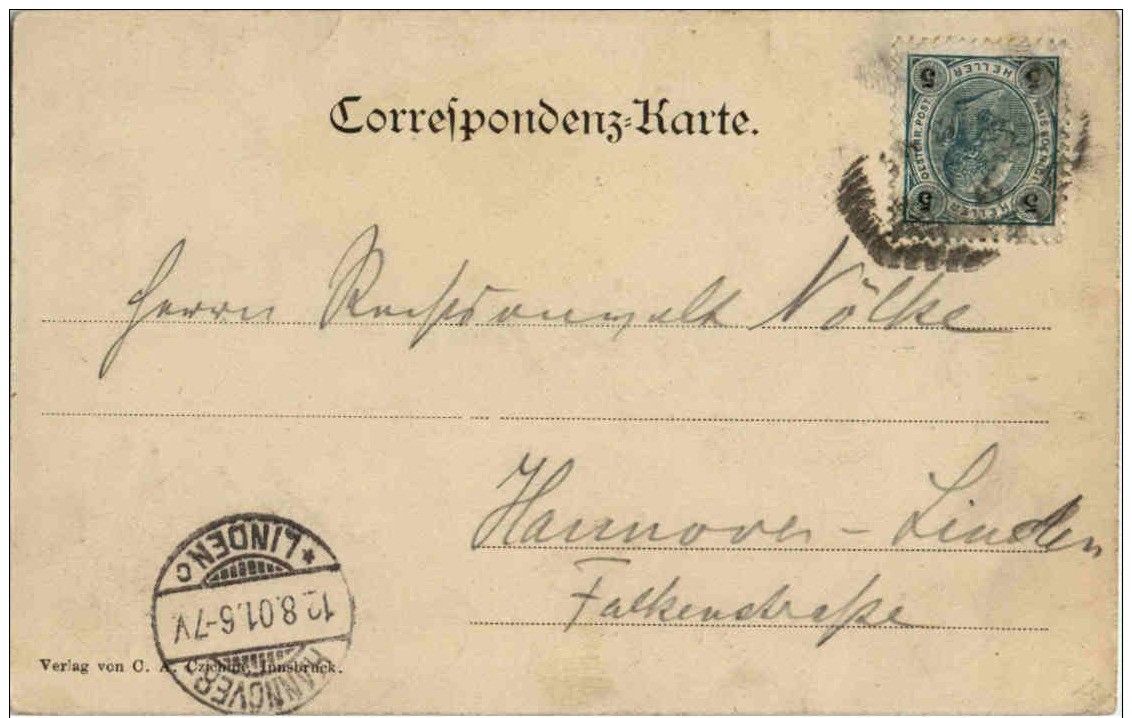 Correſpondenz-Karte.
5 HELLER 5
OESTERR. POST
5 HELLER 5
Herrn Rechtsanwalt Nölke
Hannover - Linden
Falkenstraße
* LINDEN c
12.8.01.6-7V.
HANNOVER
Verlag von C. A. Czichna, Innsbruck.